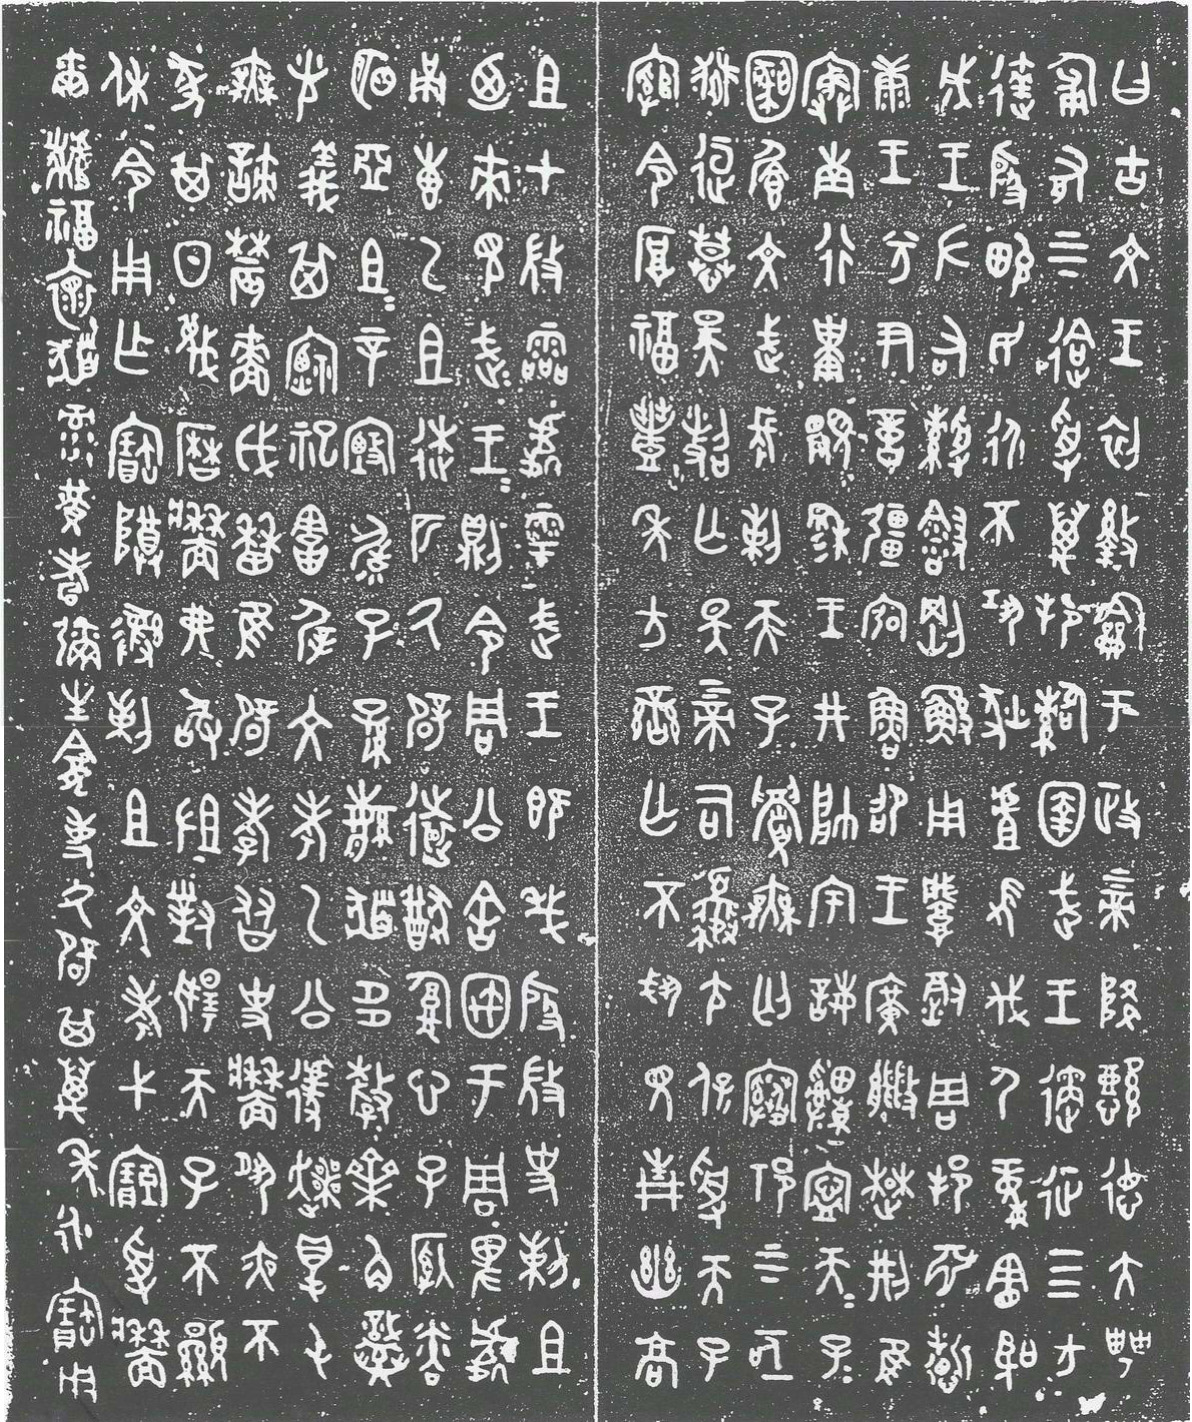 曰古文王初𢾊龢于政上帝降懿德大甹
匍有上下迨受萬邦圉武王遹征四方
達殷畯民永不巩狄虘髟伐尸童憲聖
成王左右綬會剛鯀用肇徹周邦淵哲
康王兮尹億疆宖魯卲王廣楚荊隹
寏南行祗覭穆王井帥宇誨寧天子天子
文武長剌天子無匄祁上下亟
獄逗慕昊照亡斁上帝司夒尢保受天子
綰令厚福豐年方蠻亡不見青幽高
且才微霝處雩武王既𢦏殷微史剌且
迺來見武王武王則令周公舍宇于周卑處
甬叀乙且匹氒辟遠猷腹心子粦
明亞且且辛毓子孫繁多孷齊角熾
光義其禋祀害屖文考乙公遽爽得屯
無諫農嗇戉曆隹辟孝友史牆夙夜不
彖其日蔑曆牆弗敢沮對揚天子不顯
休令用乍寶尊彝剌且文考弋受牆
爾福懷录黃耇彌生龕事氒辟其萬年永寶用